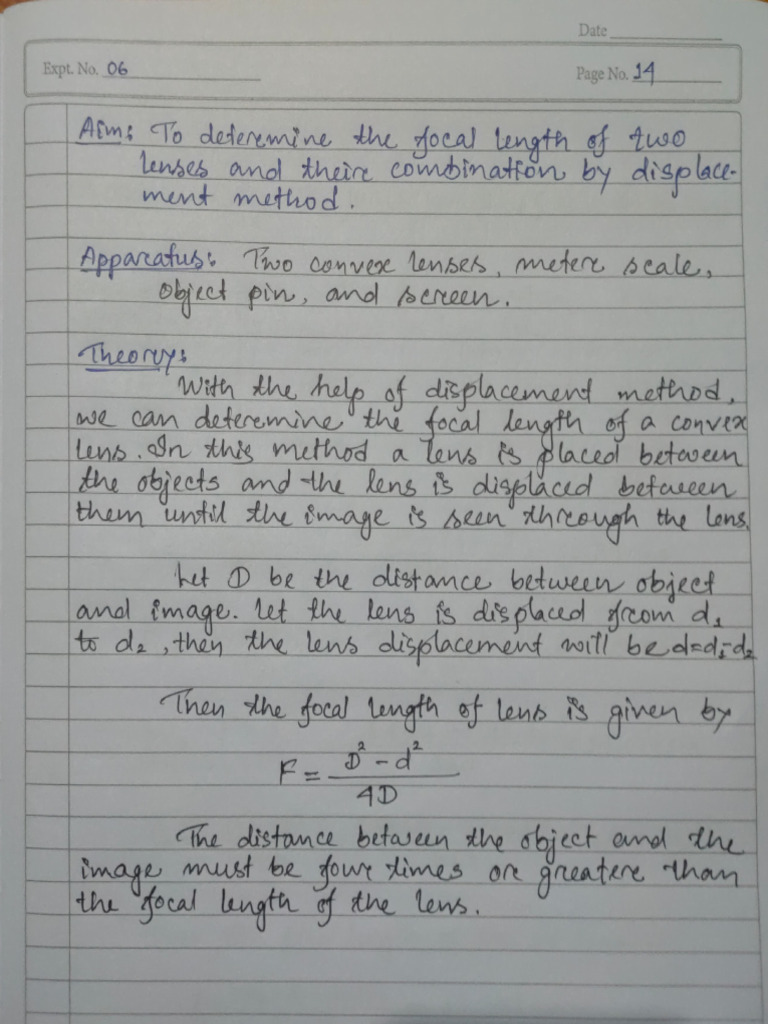 Date
Expt. No. 06
Page No. 14
Aim: To determine the focal length of two
lenses and their combination by displace-
ment method.
Apparatus: Two convex lenses, meter scale,
object pin, and screen.
Theory:
With the help of displacement method,
we can determine the focal length of a convex
lens. In this method a lens is placed between
the objects and the lens is displaced between
them until the image is seen through the lens.
Let D be the distance between object
and image. Let the lens is displaced from d₁
to d₂, then the lens displacement will be d=d₁-d₂
Then the focal length of lens is given by
F = D² - d²
4D
The distance between the object and the
image must be four times or greater than
the focal length of the lens.